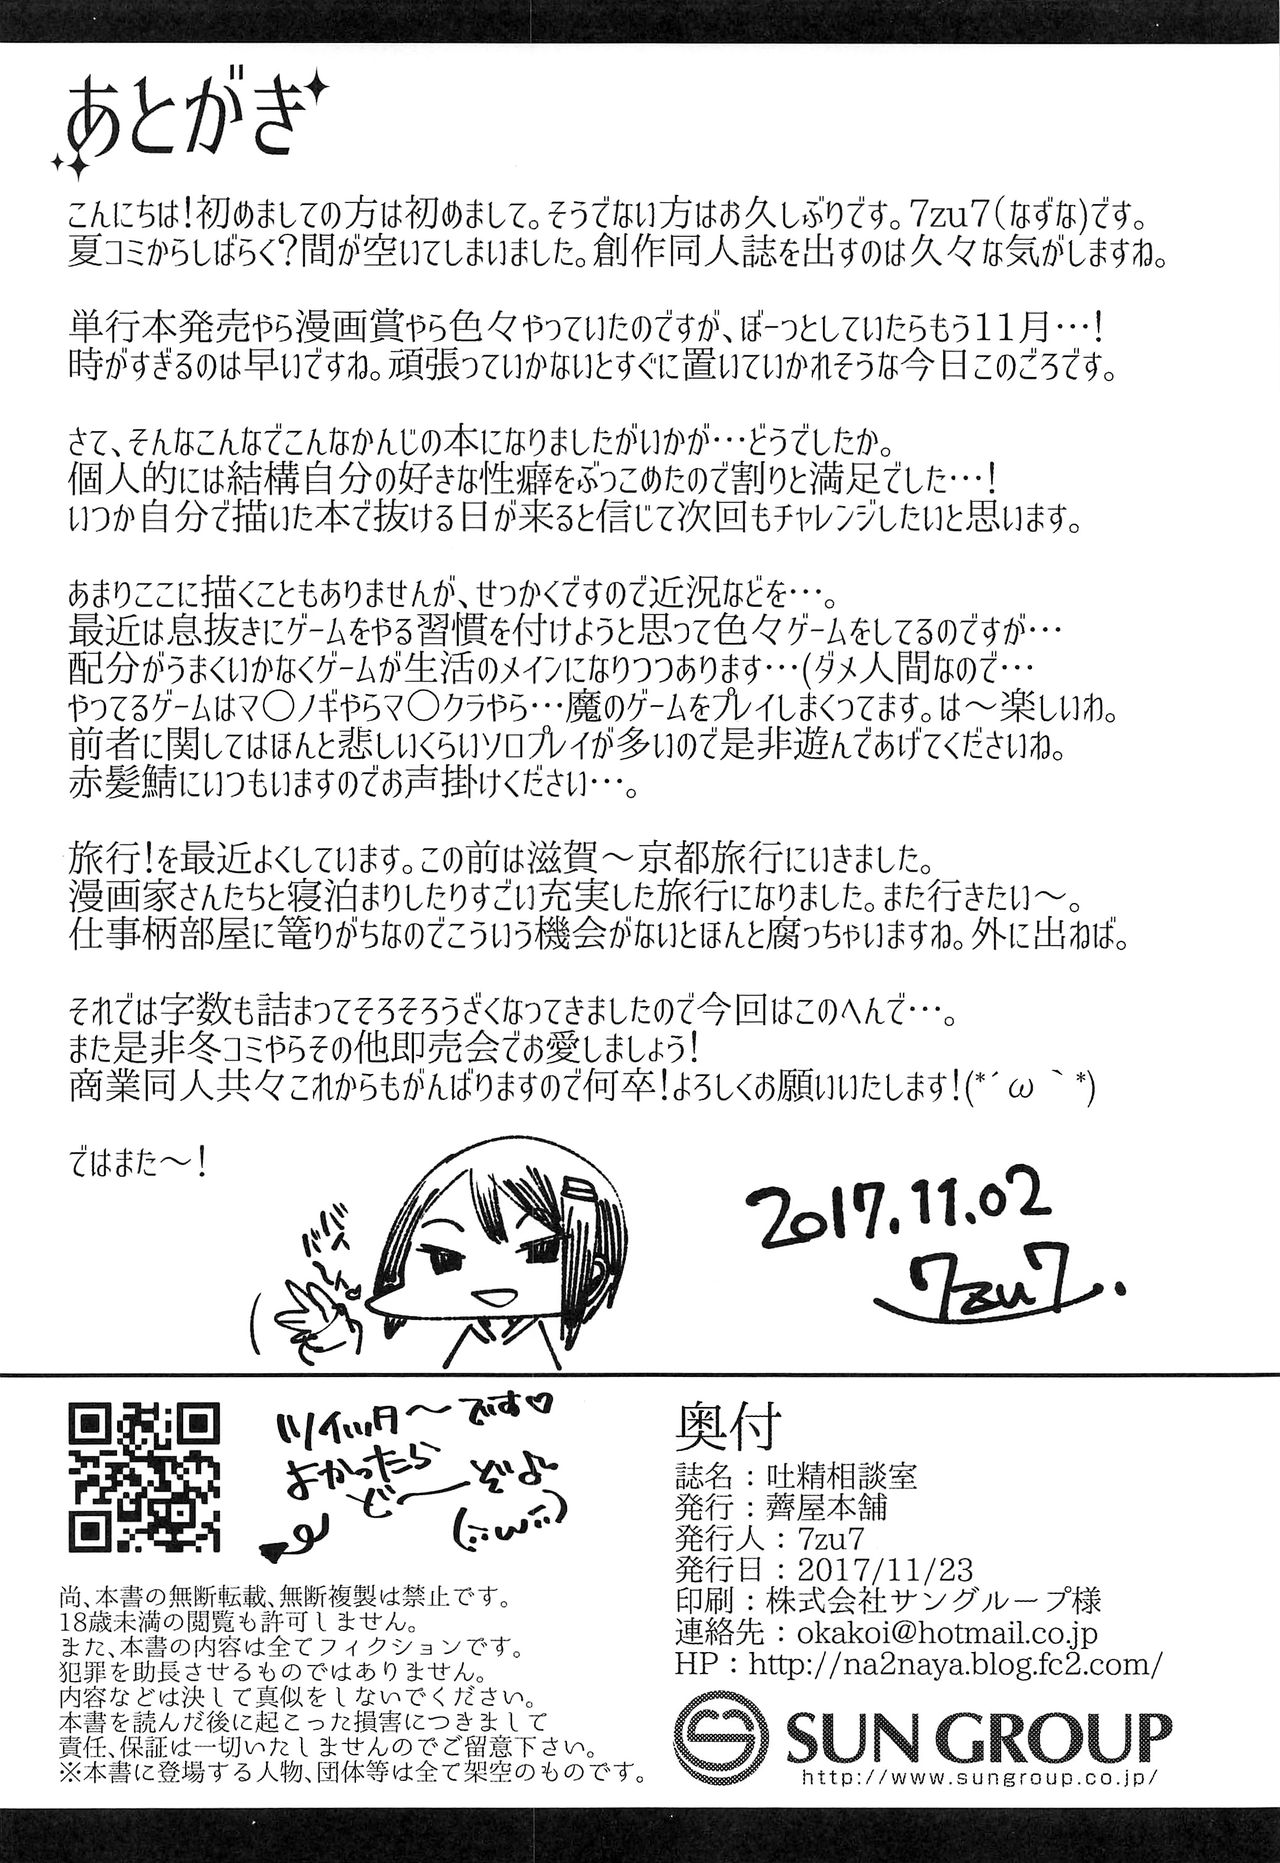 あとがき
こんにちは!初めましての方は初めまして。そうでない方はお久しぶりです。7zu7(なずな)です。
夏コミからしばらく?間が空いてしまいました。創作同人誌を出すのは久々な気がしますね。
単行本発売やら漫画賞やら色々やっていたのですが、ぼーっとしていたらもう11月…!
時がすぎるのは早いですね。頑張っていかないとすぐに置いていかれそうな今日このごろです。
さて、そんなこんなでこんなかんじの本になりましたがいかが…どうでしたか。
個人的には結構自分の好きな性癖をぶっこめたので割りと満足でした…!
いつか自分で描いた本で抜ける日が来ると信じて次回もチャレンジしたいと思います。
あまりここに描くこともありませんが、せっかくですので近況などを…。
最近は息抜きにゲームをやる習慣を付けようと思って色々ゲームをしてるのですが…
配分がうまくいかなくゲームが生活のメインになりつつあります…(ダメ人間なので…
やってるゲームはマ〇ノギやらマ〇クラやら…魔のゲームをプレイしまくってます。は～楽しいわ。
前者に関してはほんと悲しいくらいソロプレイが多いので是非遊んであげてくださいね。
赤髪鯖にいつもいますのでお声掛けください…。
旅行!を最近よくしています。この前は滋賀～京都旅行にいきました。
漫画家さんたちと寝泊まりしたりすごい充実した旅行になりました。また行きたい～。
仕事柄部屋に篭りがちなのでこういう機会がないとほんと腐っちゃいますね。外に出ねば。
それでは字数も詰まってそろそろうざくなってきましたので今回はこのへんで…。
また是非冬コミやらその他即売会でお愛しましょう!
商業同人共々これからもがんばりますので何卒!よろしくお願いいたします!(*´ω｀*)
ではまた～!
バイバ～イ
2017.11.02
7zu7.
ツイッタ～です♡
よかったら
ど～ぞよ
奥付
誌名：吐精相談室
発行：薺屋本舗
発行人：7zu7
発行日：2017/11/23
印刷：株式会社サングループ様
連絡先：okakoi@hotmail.co.jp
HP：http://na2naya.blog.fc2.com/
SUN GROUP
http://www.sungroup.co.jp/
尚、本書の無断転載、無断複製は禁止です。
18歳未満の閲覧も許可しません。
また、本書の内容は全てフィクションです。
犯罪を助長させるものではありません。
内容などは決して真似をしないでください。
本書を読んだ後に起こった損害につきまして
責任、保証は一切いたしませんのでご留意下さい。
※本書に登場する人物、団体等は全て架空のものです。